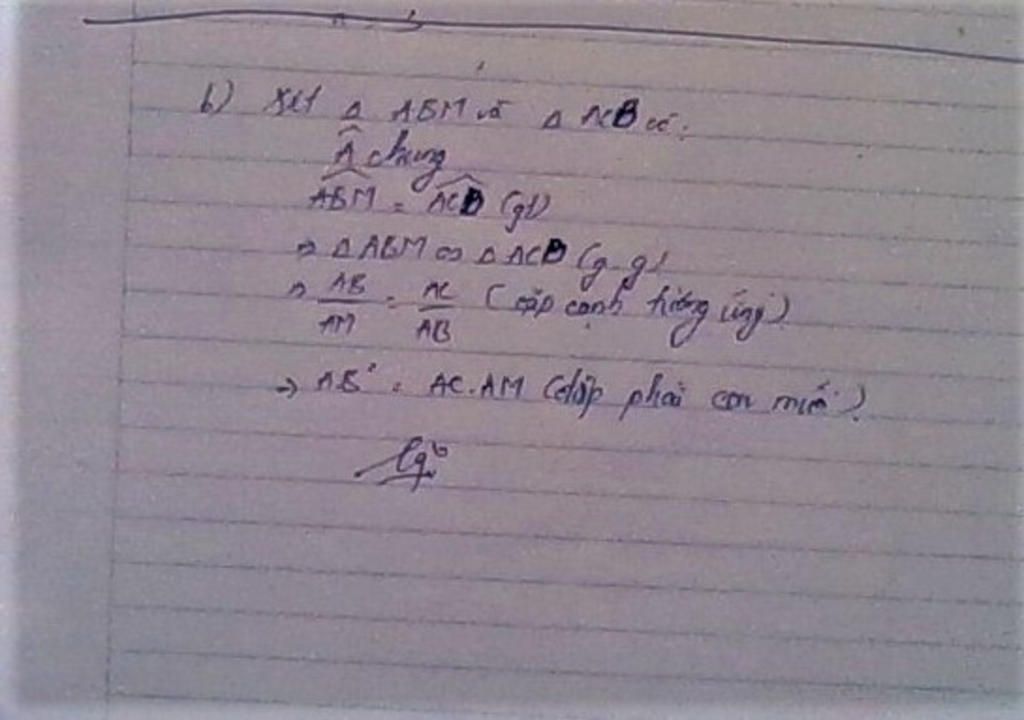 b) Xét Δ ABM và Δ ACB có:
Â chung
ABM = ACB (gt)
=> Δ ABM ∽ Δ ACB (g-g)
=> AB/AM = AC/AB (cặp cạnh tương ứng)
=> AB² = AC.AM (đấp phải con mé)